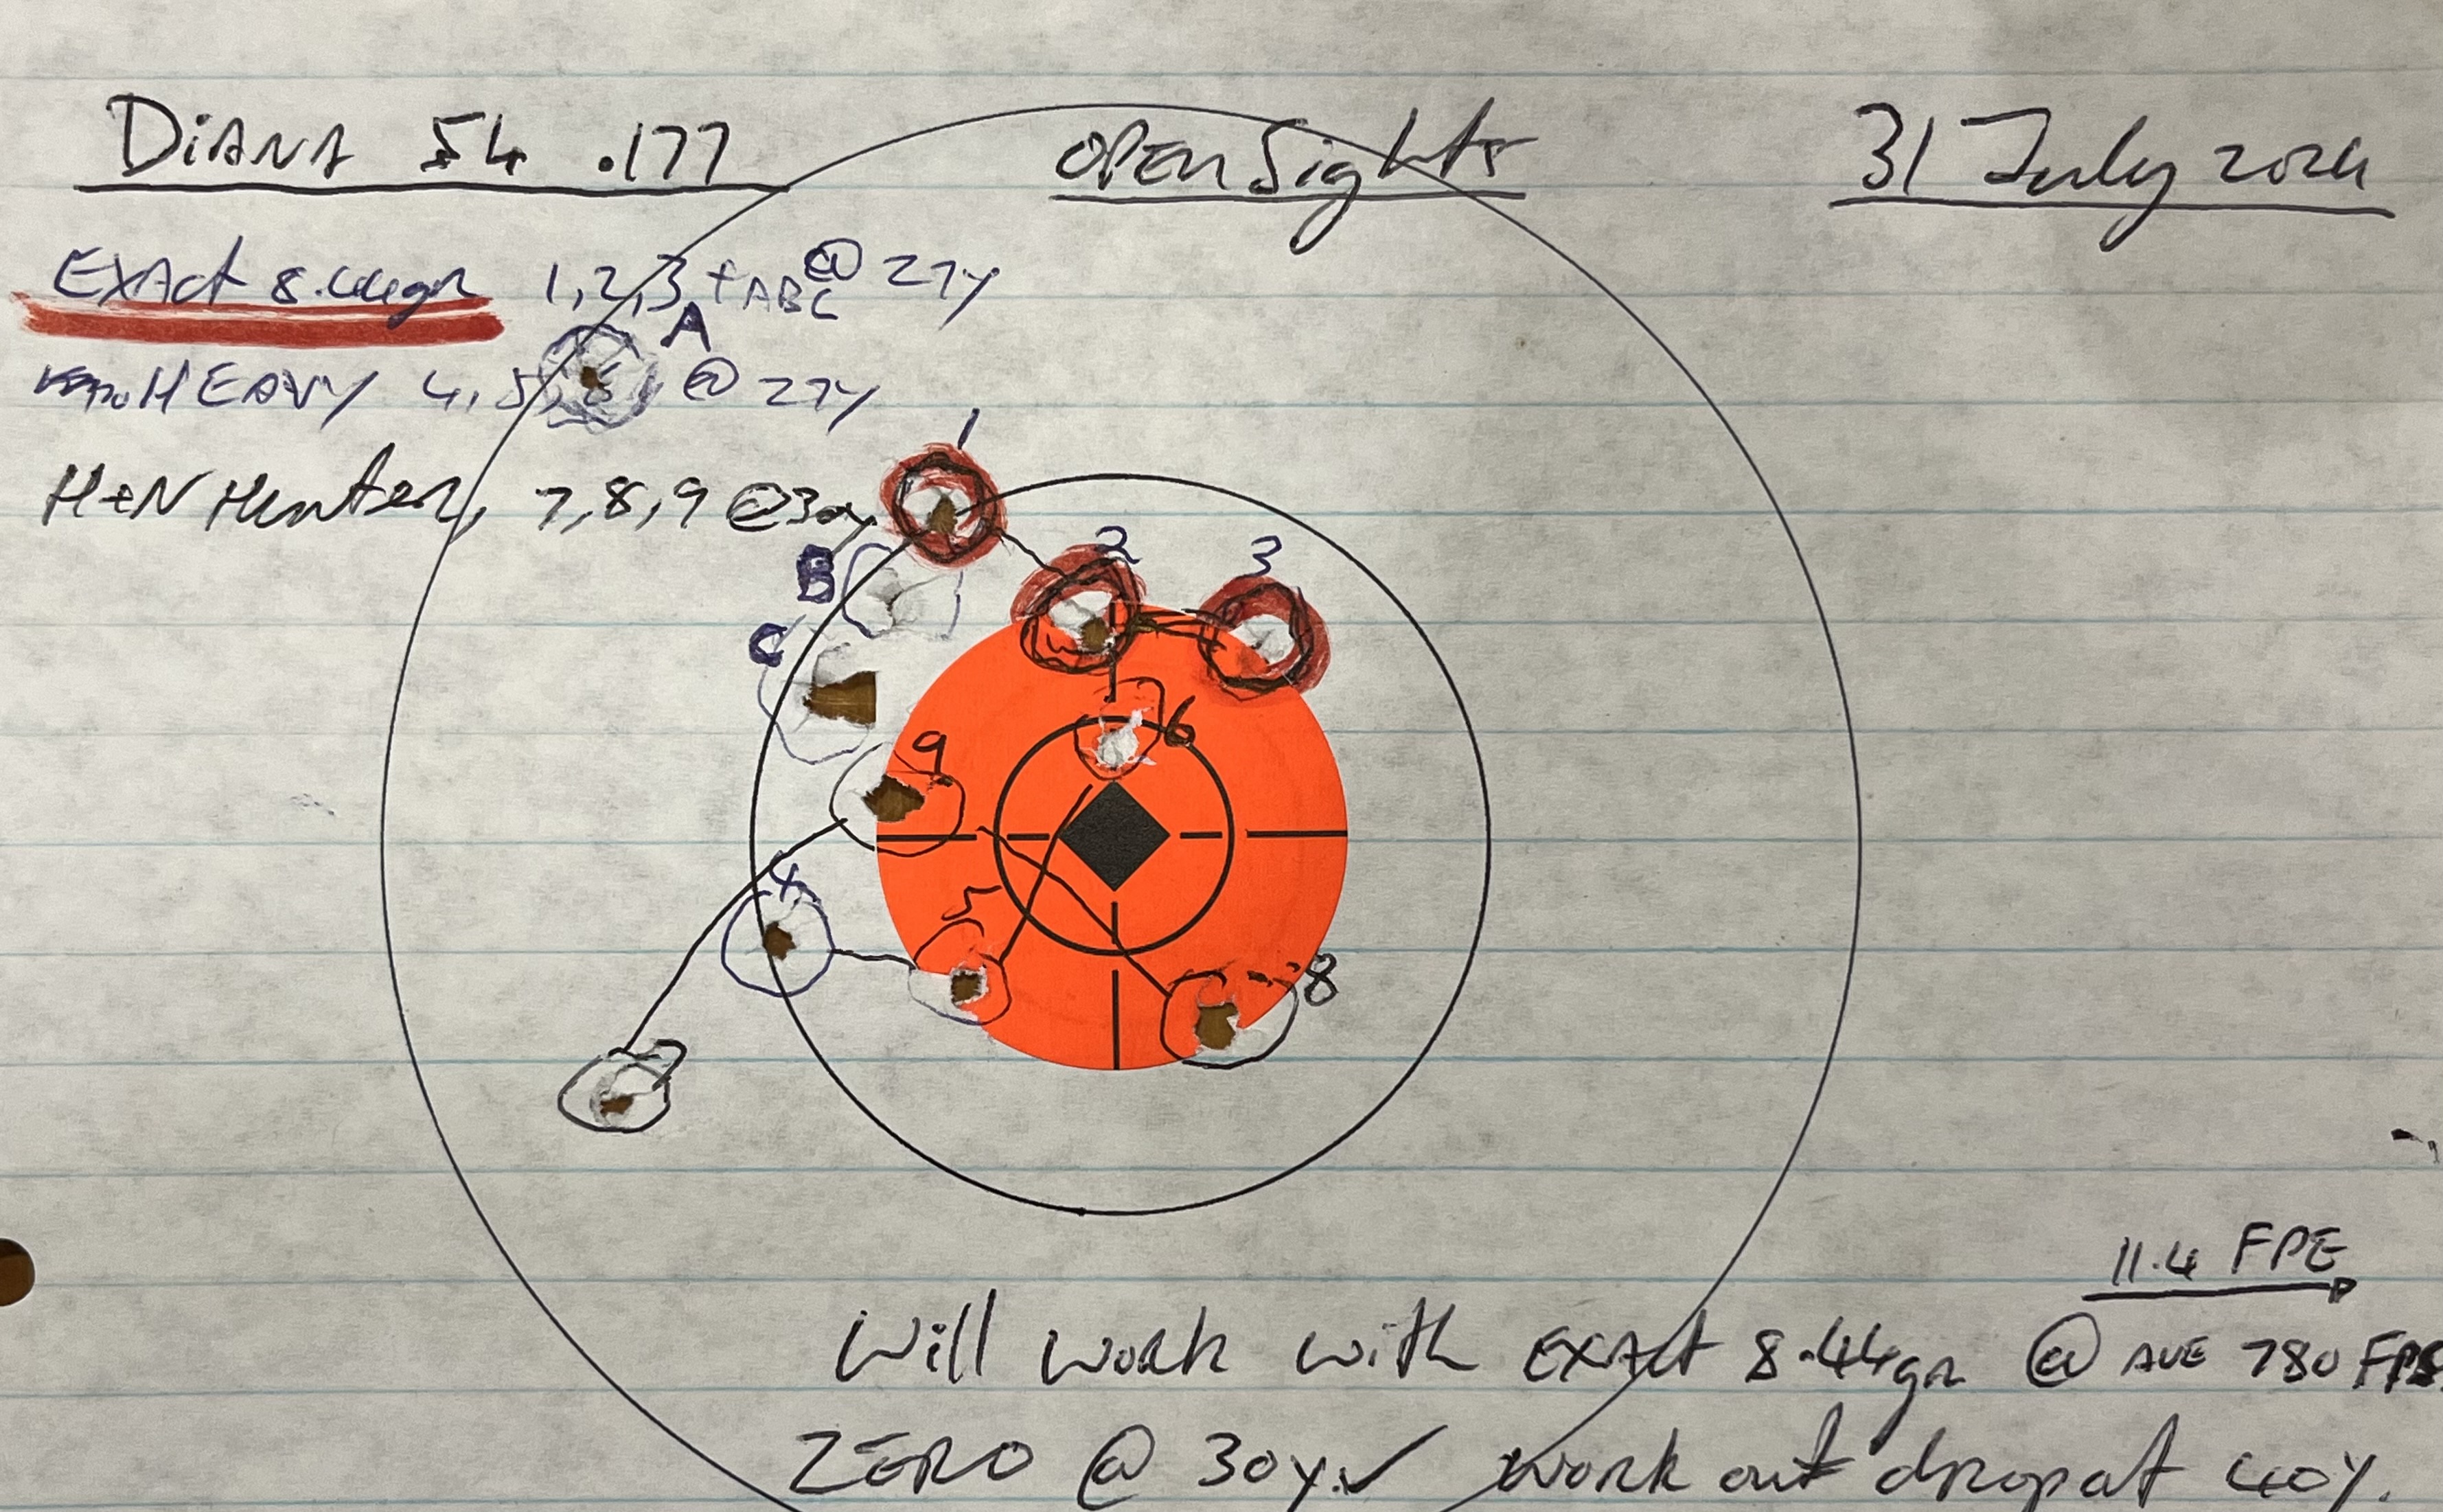 DiANA 54 .177 OPEN Sights 31 July 2024
Exact 8.44gr 1,2,3 + ABC @ 27y
A
HEAVY 4,5,6 @ 27y
1
H+N Hunter, 7,8,9 @30y
2
3
B
C
6
9
4
5
8
7
11.4 FPE
Will work with EXAct 8.44gr @ AVE 780 FPS
ZERO @ 30y. ✓ work out drop at 40y.